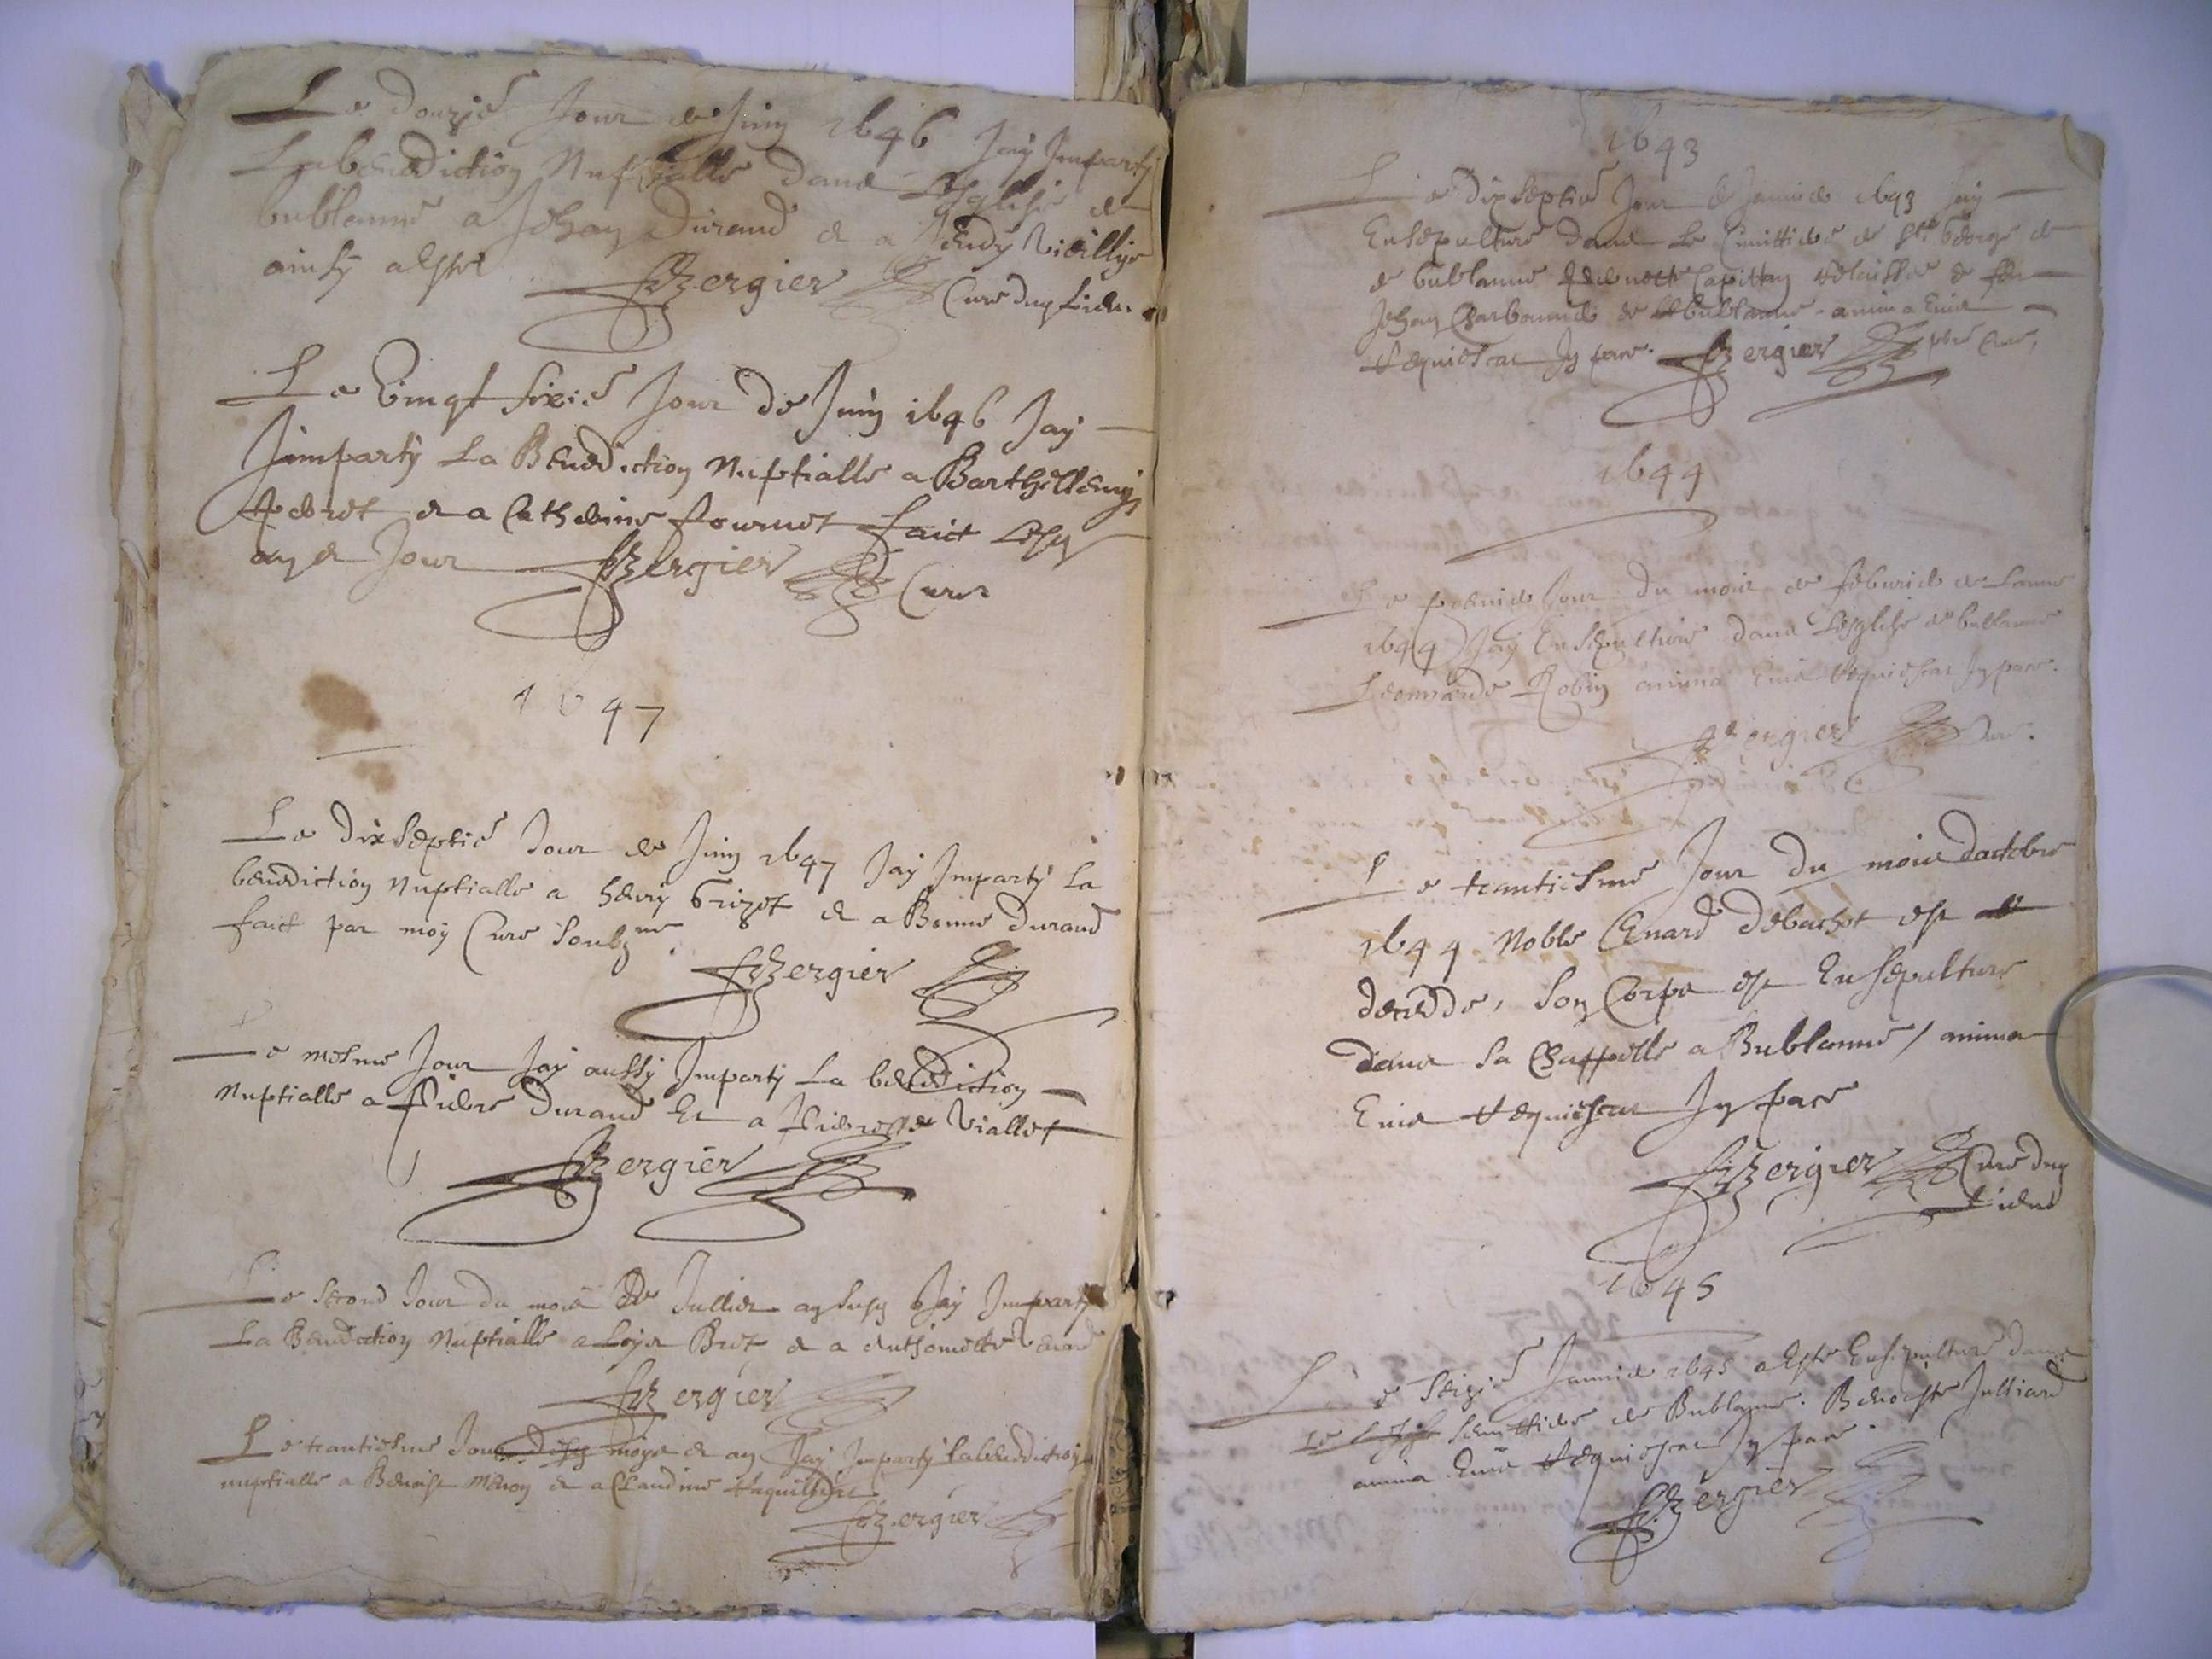 Le douzie Jour de Juin 1646 Jay Imparty
La benediction Nuptialle dans Lesglise de
bublanne a Jehan Durand & a
ainsy a este Bergier Cure dud Lieu
Le Vingt sixie Jour de Juin 1646 Jay
Jmparty La Benediction Nuptialle a Barthellemy
& a Catherine fournet faict
an & Jour Bergier Cure
1647
Le dixseptie Jour de Juin 1647 Jay Imparty La
benediction Nuptialle a henry & a Bonne Durand
faict par moy Cure soubzne
Bergier
Le mesme Jour Jay aussy Imparty La benediction
Nuptialle a Durand Et a Viallet
Bergier
Le second Jour du mois de Jullier an Jay Imparty
La Benediction Nuptialle a & a
Bergier
Le trantiesme Jour moys & an Jay Imparty La benediction
nuptialle a & a Claudine
Bergier
1643
Le dixseptie Jour de Janvie 1643 Jay
Ensepulture dans Le Cimittiere de George
de bublanne feu
Jehan Charbonnie de bublanne. anima Eius
requiescat In pace. Bergier Cure,
1644
Le premie Jour du mois de feburie de Lanne
1644 Jay Ensepulture dans Lesglise de bublanne
Leonnarde Robin anima Eius requiescat In pace.
Bergier Cure.
Le trantiesme Jour du mois doctobre
1644 Noble est
decedde, son Corps est Ensepulture
dans sa Chappelle a Bublanne / anima
Eius requiescat In pace
Bergier Cure dud
Lieud
1645
Le Seizie Janvie 1645 a este Ensepulture dans
Le de Bublanne. Benoiste Julliard
anima Eius requiescat In pace.
Bergier